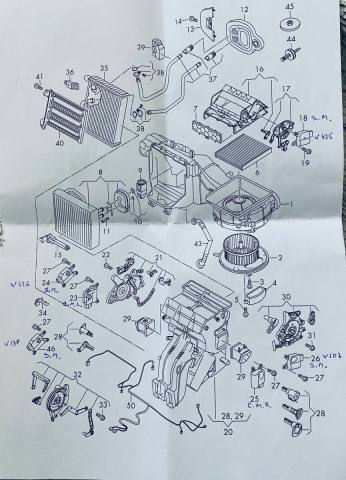 45
12
14
13
39
44
35
38
37
16
41
36
17
7
18 S.M.
V425
40
38
19
6
8
9
1
11
10
43
15
27
22
21
2
V426
24
S.M.
27
23
3
4
5
30
34
29
V434
28
31
27
46
S.M.
29
26 V107
S.M.
27
32
25
E.M.R.
28
33
50
28, 29
20